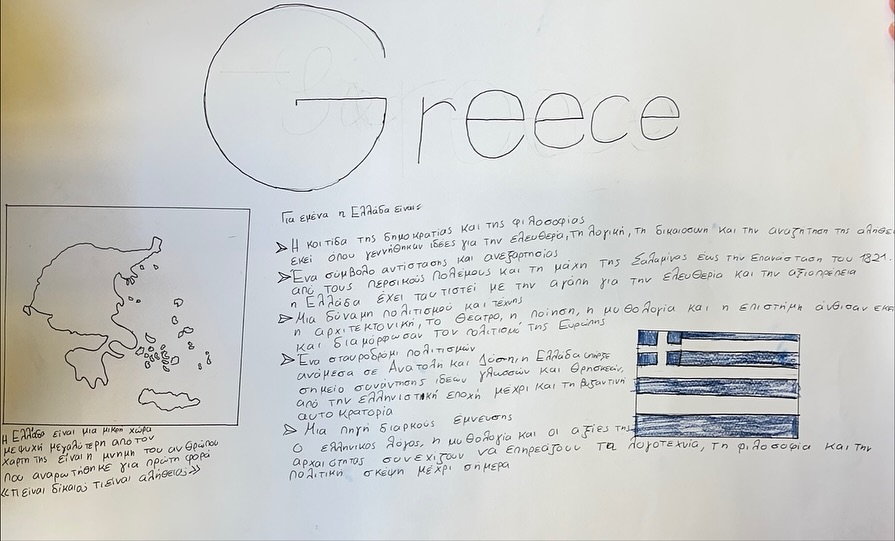 Greece
Για εμένα η Ελλάδα είναι:
➤ Η κοιτίδα της δημοκρατίας και της φιλοσοφίας
εκεί όπου γεννήθηκαν ιδέες για την ελευθερά, τη λογική, τη δικαιοσυνη και την αναζητηση της αλήθει
➤ Ένα σύμβολο αντίστασης και ανεξαρτησίας
από τους περσικούς πολέμους και τη μάχη της Σαλαμίνας εως την Επανάσταση του 1821.
η Ελλάδα έχει ταυτιστεί με την αγάπη για την ελευθερία και την αξιοπρέπεια
➤ Μια δύναμη πολιτισμού και τέχνης
η αρχιτεκτονική, το θέατρο, η ποίηση, η μυθολογία και η επιστήμη άνθισαν εκε
και διαμόρφωσαν τον πολιτισμό της Ευρώπης
➤ Ένα σταυροδρόμι πολιτισμών
ανάμεσα σε Ανατολή και Δύση, η Ελλάδα υπήρξε
σημείο συνάντησης ιδεών γλωσσών και θρησκειών,
από την ελληνιστική εποχή μέχρι και τη βυζαντινή
αυτοκρατορία
➤ Μια πηγή διαρκούς έμνευσης
Ο ελληνικός λόγος, η μυθολογία και οι αξίες της
αρχαιότητας συνεχίζουν να επηρεάζουν τα λογοτεχνία, τη φιλοσοφία και την
πολιτική σκέψη μέχρι σήμερα
Η Ελλάδα είναι μια μικρή χώρα
με ψυχή μεγαλύτερη από τον
χάρτη της είναι η μνήμη του ανθρώπου
που αναρωτήθηκε για πρώτη φορά
«τι είναι δίκαιο; τι είναι αλήθεια;»